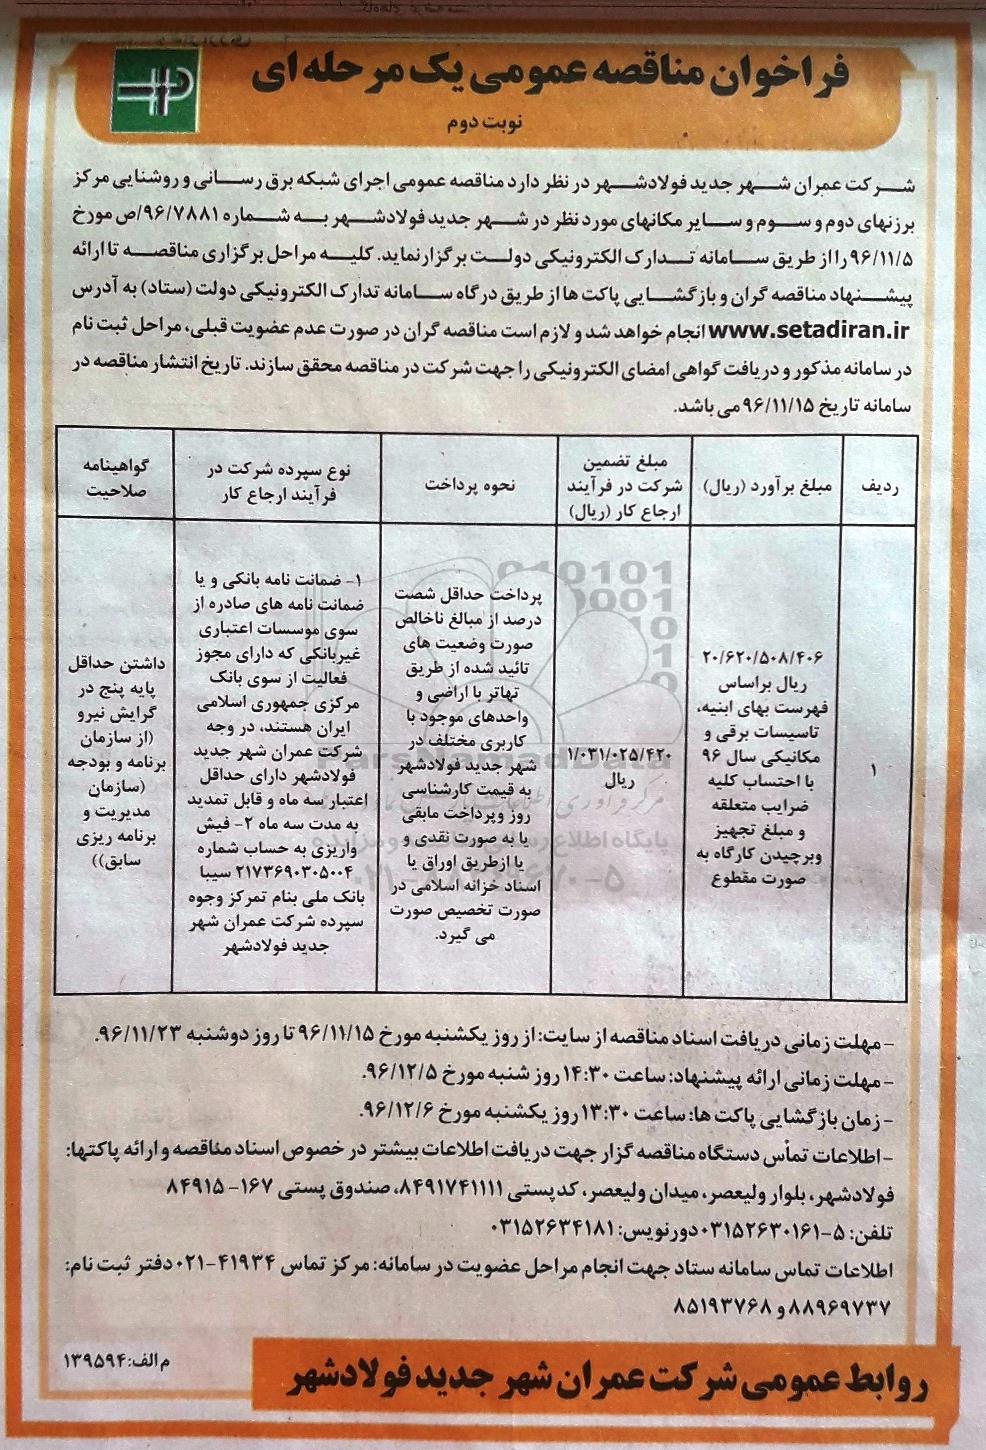 فراخوان مناقصه عمومی یک مرحله ای
نوبت دوم
شرکت عمران شهر جدید فولادشهر در نظر دارد مناقصه عمومی اجرای شبکه برق رسانی و روشنایی مرکز
برزنهای دوم و سوم و سایر مکانهای مورد نظر در شهر جدید فولادشهر به شماره ۹۶/۷۸۸۱/ص مورخ
۹۶/۱۱/۵ را از طریق سامانه تدارک الکترونیکی دولت برگزار نماید. کلیه مراحل برگزاری مناقصه تا ارائه
پیشنهاد مناقصه گران و بازگشایی پاکت ها از طریق درگاه سامانه تدارک الکترونیکی دولت (ستاد) به آدرس
www.setadiran.ir انجام خواهد شد و لازم است مناقصه گران در صورت عدم عضویت قبلی، مراحل ثبت نام
در سامانه مذکور و دریافت گواهی امضای الکترونیکی را جهت شرکت در مناقصه محقق سازند. تاریخ انتشار مناقصه در
سامانه تاریخ ۹۶/۱۱/۱۵ می باشد.
ردیف
مبلغ برآورد (ریال)
مبلغ تضمین
شرکت در فرآیند
ارجاع کار (ریال)
نحوه پرداخت
نوع سپرده شرکت در
فرآیند ارجاع کار
گواهینامه
صلاحیت
۱
۲۰/۶۲۰/۵۰۸/۴۰۶
ریال براساس
فهرست بهای ابنیه،
تاسیسات برقی و
مکانیکی سال ۹۶
با احتساب کلیه
ضرایب متعلقه
و مبلغ تجهیز
وبرچیدن کارگاه به
صورت مقطوع
۱/۰۳۱/۰۲۵/۴۲۰
ریال
پرداخت حداقل شصت
درصد از مبالغ ناخالص
صورت وضعیت های
تائید شده از طریق
تهاتر با اراضی و
واحدهای موجود با
کاربری مختلف در
شهر جدید فولادشهر
به قیمت کارشناسی
روز وپرداخت مابقی
یا به صورت نقدی و
یا ازطریق اوراق یا
اسناد خزانه اسلامی در
صورت تخصیص صورت
می گیرد.
۱- ضمانت نامه بانکی و یا
ضمانت نامه های صادره از
سوی موسسات اعتباری
غیربانکی که دارای مجوز
فعالیت از سوی بانک
مرکزی جمهوری اسلامی
ایران هستند، در وجه
شرکت عمران شهر جدید
فولادشهر دارای حداقل
اعتبار سه ماه و قابل تمدید
به مدت سه ماه ۲- فیش
واریزی به حساب شماره
۲۱۷۳۶۹۰۳۰۵۰۰۴ سیبا
بانک ملی بنام تمرکز وجوه
سپرده شرکت عمران شهر
جدید فولادشهر
داشتن حداقل
پایه پنج در
گرایش نیرو
(از سازمان
برنامه و بودجه
(سازمان
مدیریت و
برنامه ریزی
سابق))
- مهلت زمانی دریافت اسناد مناقصه از سایت: از روز یکشنبه مورخ ۹۶/۱۱/۱۵ تا روز دوشنبه ۹۶/۱۱/۲۳.
- مهلت زمانی ارائه پیشنهاد: ساعت ۱۴:۳۰ روز شنبه مورخ ۹۶/۱۲/۵.
- زمان بازگشایی پاکت ها: ساعت ۱۳:۳۰ روز یکشنبه مورخ ۹۶/۱۲/۶.
- اطلاعات تماس دستگاه مناقصه گزار جهت دریافت اطلاعات بیشتر در خصوص اسناد مناقصه و ارائه پاکتها:
فولادشهر، بلوار ولیعصر، میدان ولیعصر، کدپستی ۸۴۹۱۷۴۱۱۱۱، صندوق پستی ۱۶۷- ۸۴۹۱۵
تلفن: ۵-۰۳۱۵۲۶۳۰۱۶۱ دورنویس: ۰۳۱۵۲۶۳۴۱۸۱
اطلاعات تماس سامانه ستاد جهت انجام مراحل عضویت در سامانه: مرکز تماس ۴۱۹۳۴-۰۲۱ دفتر ثبت نام:
۸۸۹۶۹۷۳۷ و ۸۵۱۹۳۷۶۸
م الف: ۱۳۹۵۹۴
روابط عمومی شرکت عمران شهر جدید فولادشهر